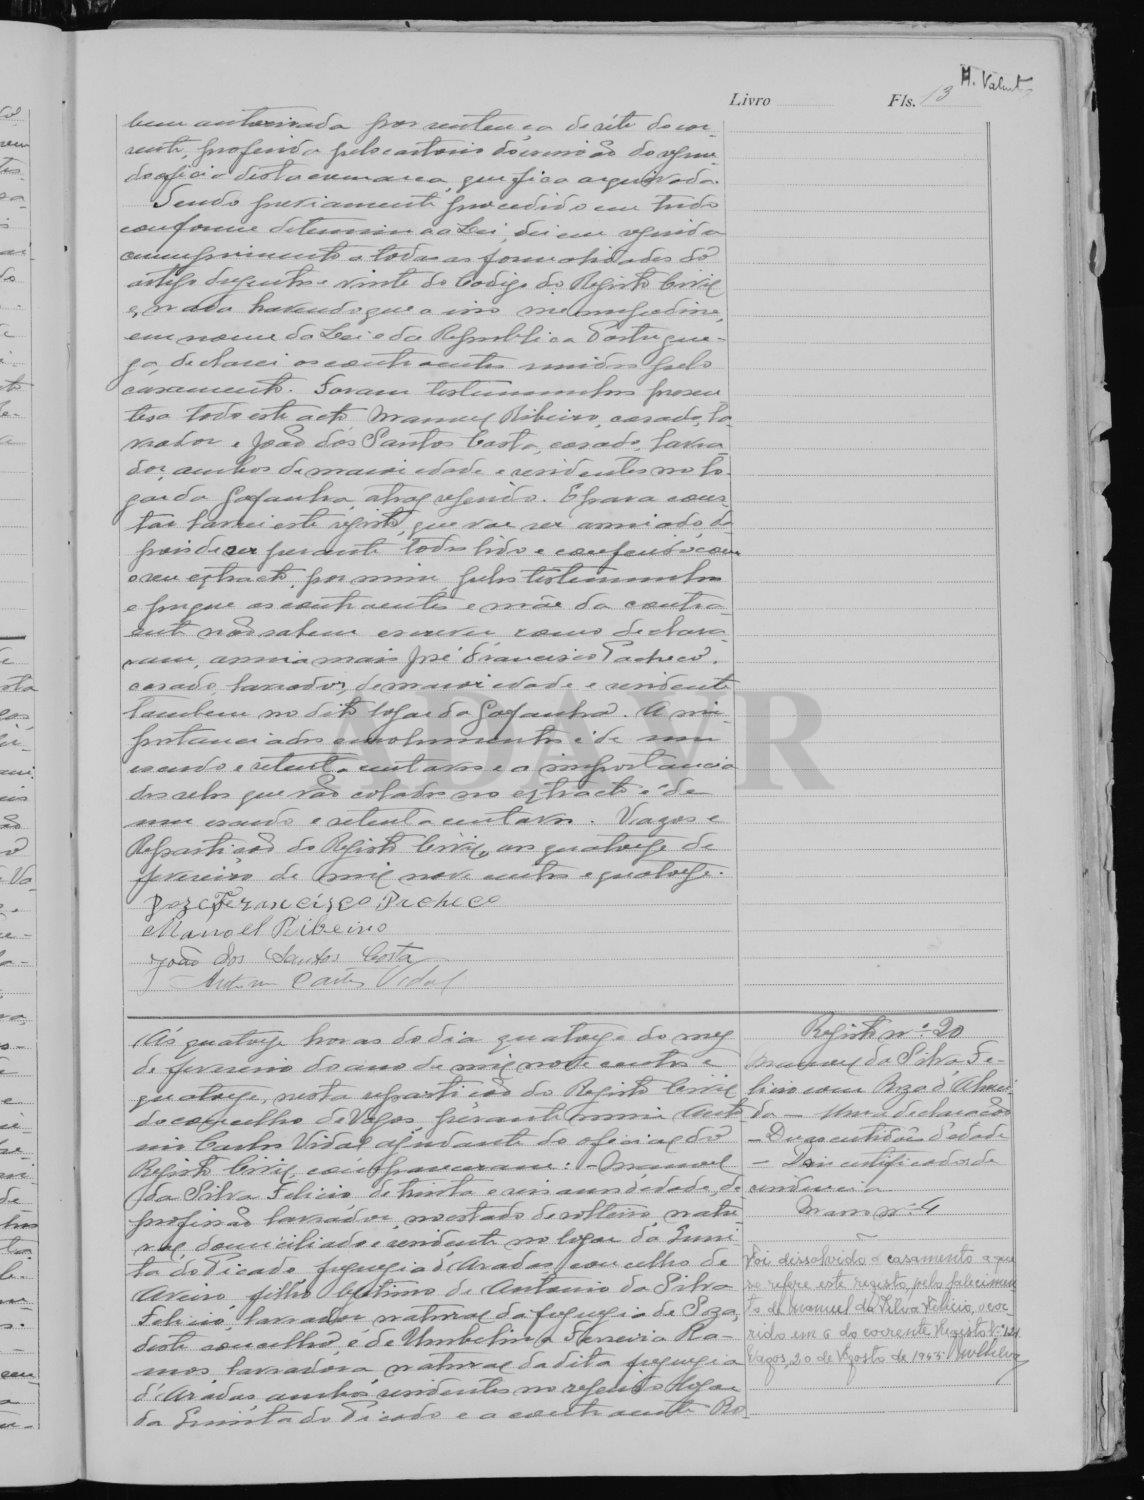 H. Valent
Livro Fls. 13
bem autorisada por sentença de séte do cor-
rente, proferida pelo cartorio do escrivão do segun-
do oficio desta comarca, que fica arquivada.
Sendo previamente procedido em tudo
conforme determina a Lei, dei em seguida
cumprimento a todas as formalidades do
artigo duzentos e vinte do Codigo do Registo Civil
e, nada havendo que a isso me impedisse,
em nome da Lei e da Republica Portugue-
za, declarei os contraentes unidos pelo
casamento. Foram testemunhas presen-
tes a todo este acto Manuel Ribeiro, casado, la-
vrador e João dos Santos Costa, casado, lavra-
dor, ambos de maior idade e residentes no lo-
gar da Gafanha, atraz referido. E para cons-
tar lavrei este registo, que vae ser assinado, de-
pois de ser perante todos lido e conferido com
o seu extracto, por mim, pelas testemunhas
e porque os contraentes e mãe da contra-
ente não sabem escrever, como declara-
ram, assina mais José Francisco Pacheco,
casado, lavrador, de maior idade e residente
tambem no dito logar da Gafanha. A im-
portancia dos emolumentos é de um
escudo e setenta centavos e a importancia
dos selos que vão colados no extracto é de
um escudo e setenta centavos. Vagos e
Repartição do Registo Civil, aos quatorze de
fevereiro de mil nove centos e quatorze.
Joze Francisco Pacheco
Manoel Ribeiro
João dos Santos Costa
Antonio Carlos Vidal
Ás quatorze horas do dia quatorze do mez
de fevereiro do ano de mil nove centos e
quatorze, nesta repartição do Registo Civil
do concelho de Vagos, perante mim Anto-
nio Carlos Vidal ajudante do oficial do
Registo Civil, compareceram: - Manuel
da Silva Felicio, de trinta e seis anos de edade, de
profissão lavrador, no estado de solteiro, natu-
ral, domiciliado e residente no logar da Quin-
ta do Picado, freguezia d'Aradas, concelho de
Aveiro, filho legitimo de Antonio da Silva
Felicio, lavrador, natural da freguezia de Soza,
deste concelho, e de Umbelina Ferreira Ra-
mos, lavradora, natural da dita freguezia
d'Aradas, ambos residentes no referido logar
da Quinta do Picado e a contraente Ro-
Registo n.º 20
Manuel da Silva Fe-
licio com Roza d'Almei-
da — Uma declaração
— Duas certidões d'edade
— Dois certificados de
residencia
Masso n.º 4
Foi dissolvido o casamento a que
se refere este registo, pelo falecimen-
to de Manuel da Silva Felicio, ocor-
rido em 6 do corrente. Registo N.º 121
Vagos, 20 de Agosto de 1945.
ADAVR